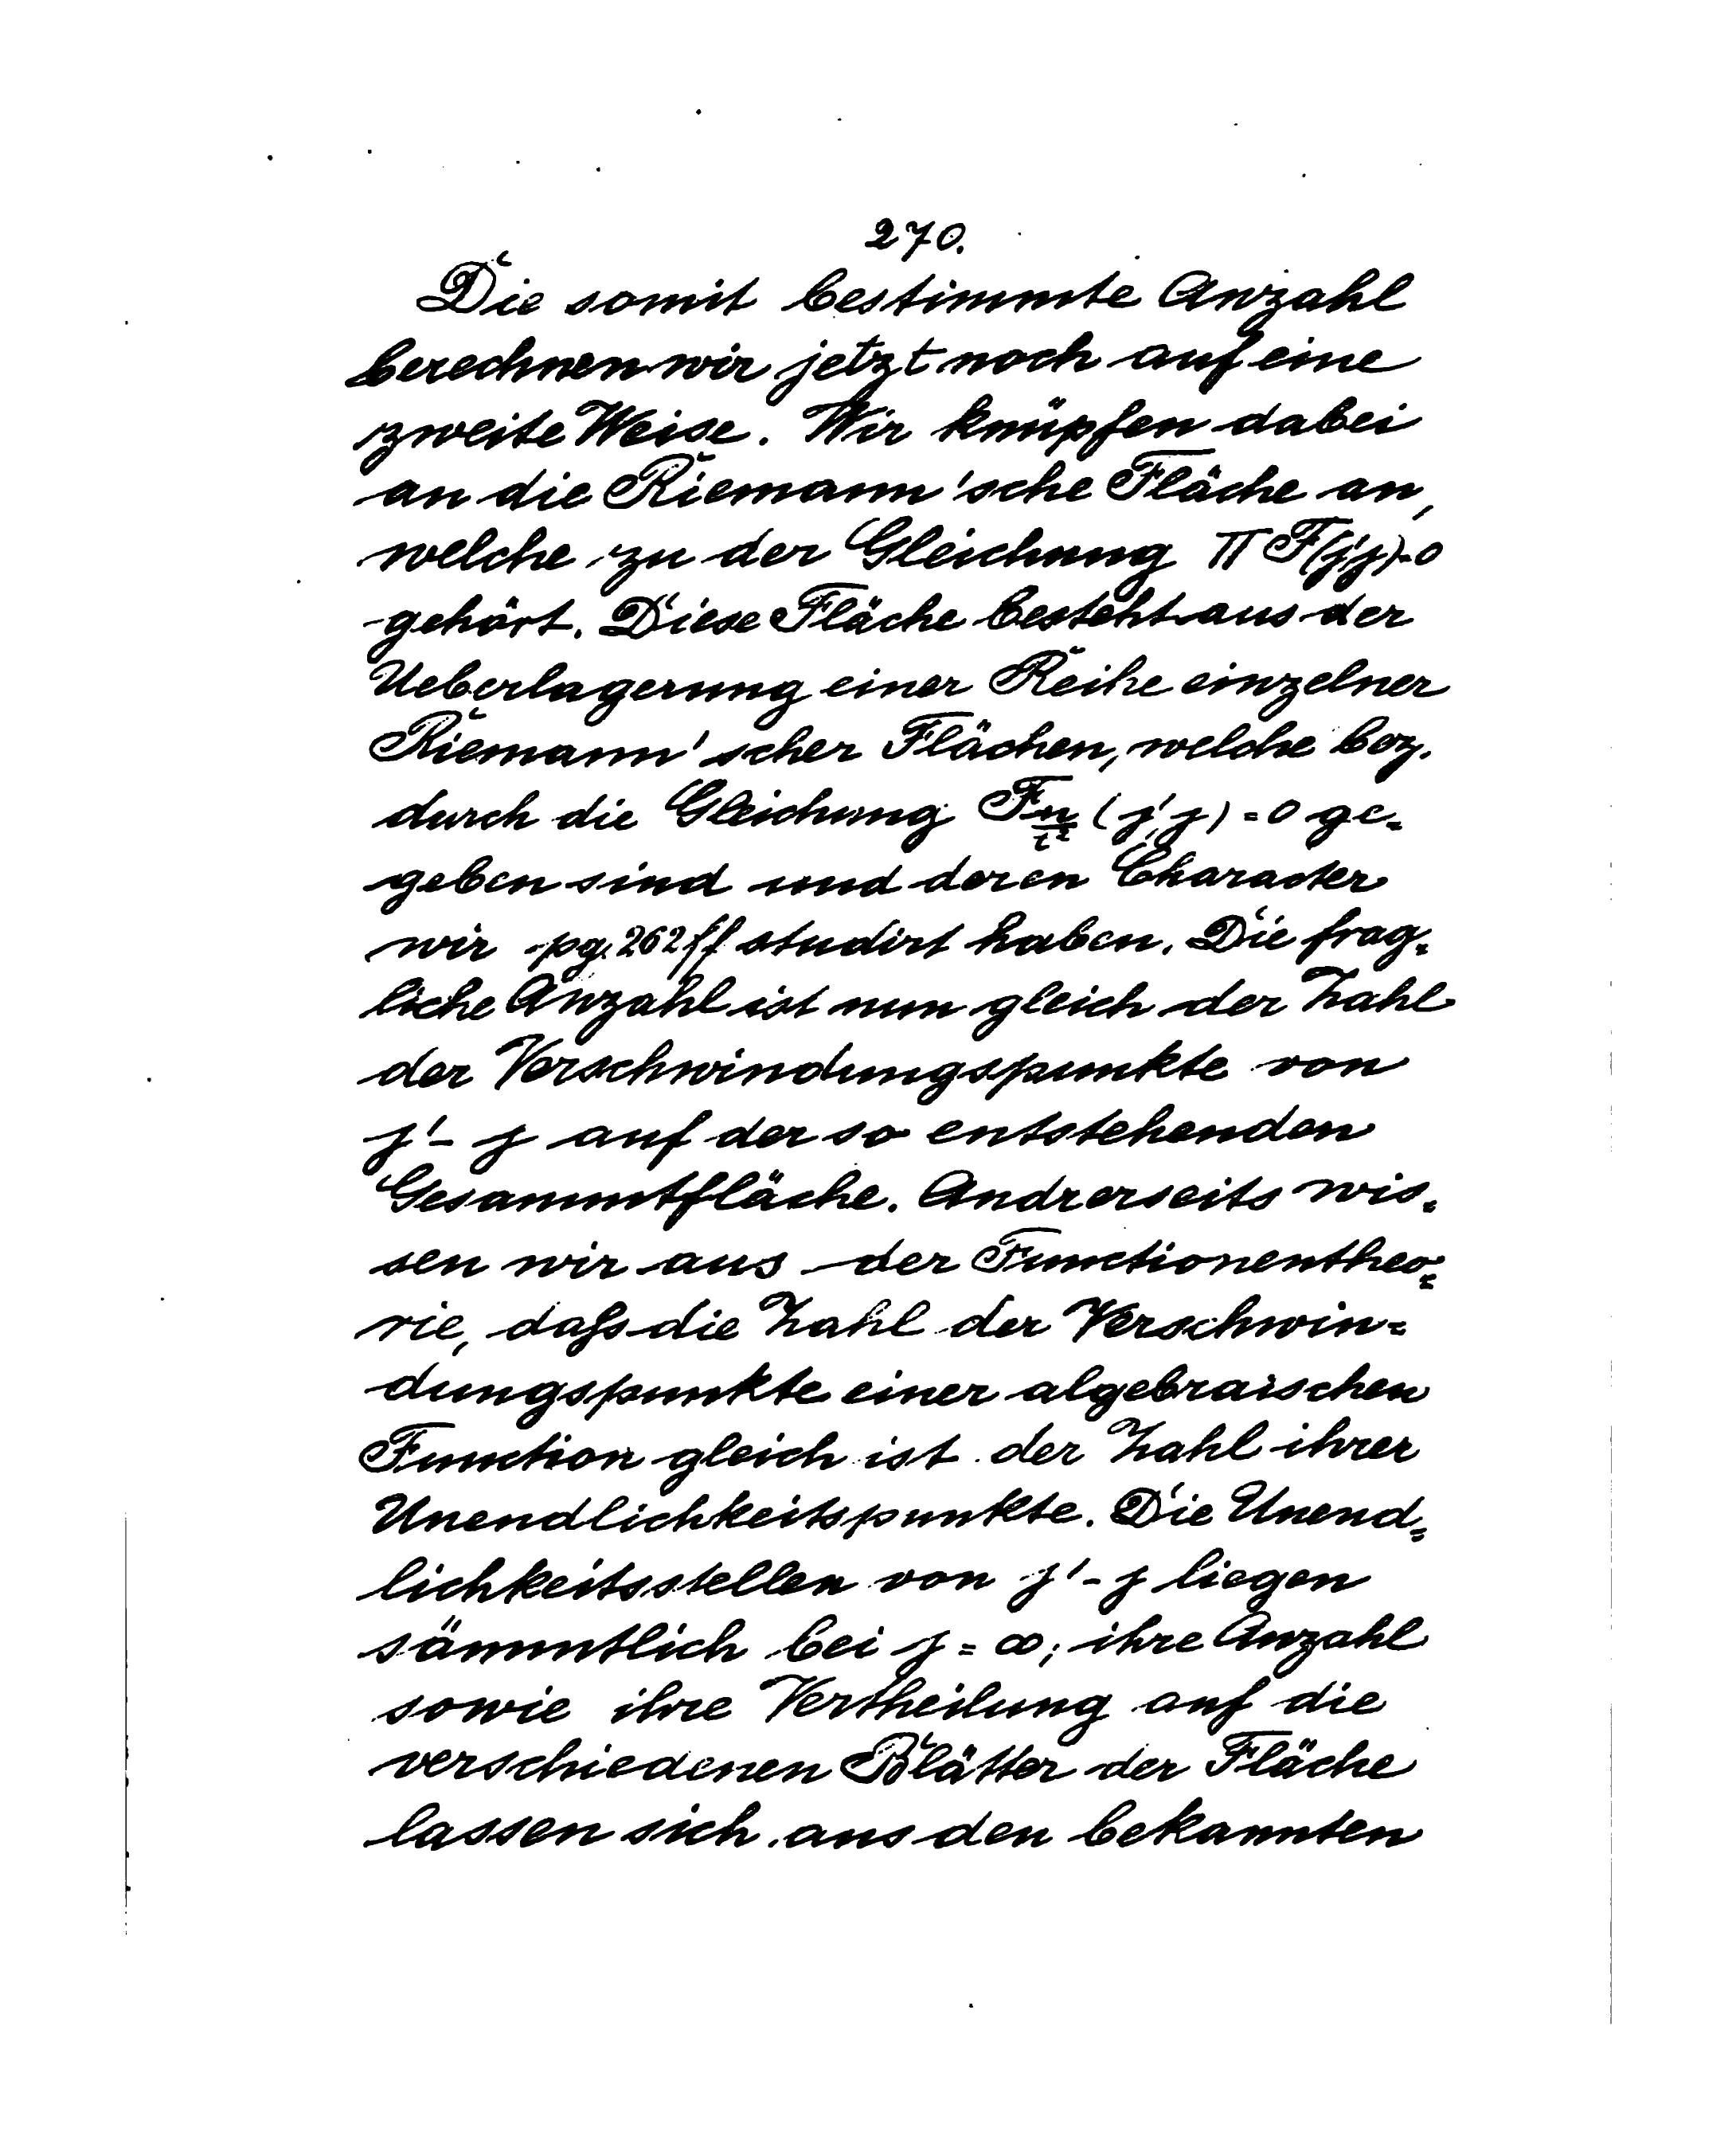 270.
Die somit bestimmte Anzahl
berechnen wir jetzt noch auf eine
zweite Weise. Wir knüpfen dabei
an die Riemann'sche Fläche an,
welche zu der Gleichung Π F(j',j)=0
gehört. Diese Fläche besteht aus der
Ueberlagerung einer Reihe einzelner
Riemann'scher Flächen, welche bez.
durch die Gleichung F_{n/t²} (j',j) = 0 ge=
geben sind und deren Character
wir pg. 262 ff studirt haben. Die frag=
liche Anzahl ist nun gleich der Zahl
der Verschwindungspunkte von
j'- j auf der so entstehenden
Gesammtfläche. Andrerseits wis=
sen wir aus der Functionentheo=
rie, daſs die Zahl der Verschwin=
dungspunkte einer algebraischen
Function gleich ist der Zahl ihrer
Unendlichkeitspunkte. Die Unend=
lichkeitsstellen von j'- j liegen
sämmtlich bei j = ∞; ihre Anzahl
sowie ihre Vertheilung auf die
verschiedenen Blätter der Fläche
lassen sich aus den bekannten